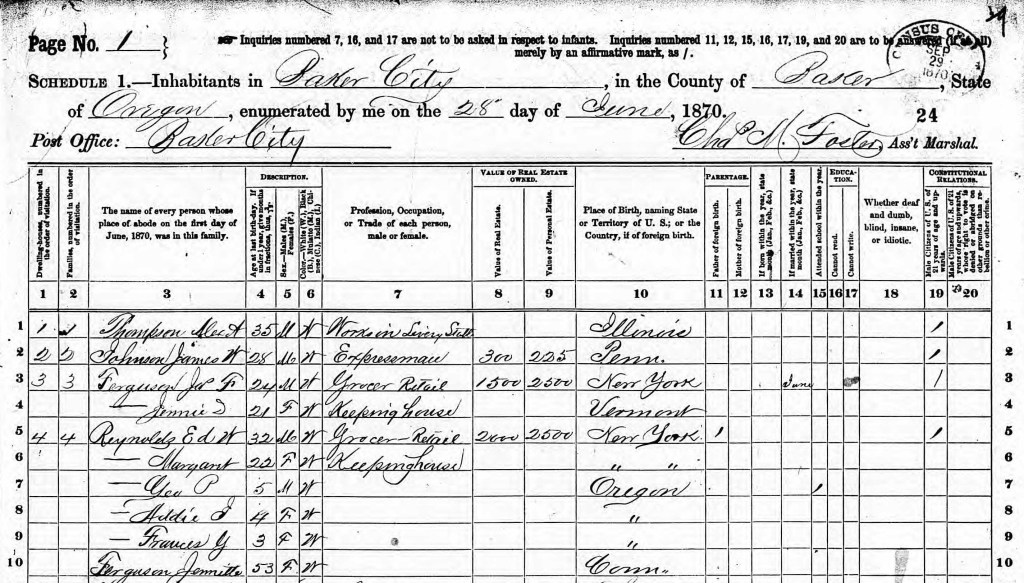 Page No. 1 }
☞ Inquiries numbered 7, 16, and 17 are not to be asked in respect to infants. Inquiries numbered 11, 12, 15, 16, 17, 19, and 20 are to be answered (if at all)
merely by an affirmative mark, as /.
SEP
29
1870
SCHEDULE 1.—Inhabitants in Baker City, in the County of Baker, State
of Oregon, enumerated by me on the 28 day of June, 1870.
24
Post Office: Baker City
Chas M. Foster, Ass't Marshal.
Dwelling-houses, numbered in the order of visitation.
Families, numbered in the order of visitation.
The name of every person whose place of abode on the first day of June, 1870, was in this family.
DESCRIPTION.
Age at last birth-day. If under 1 year, give months in fractions, thus, 3/12.
Sex.—Males (M.), Females (F.)
Color.—White (W.), Black (B.), Mulatto (M.), Chinese (C.), Indian (I.)
Profession, Occupation, or Trade of each person, male or female.
VALUE OF REAL ESTATE OWNED.
Value of Real Estate.
Value of Personal Estate.
Place of Birth, naming State or Territory of U. S.; or the Country, if of foreign birth.
PARENTAGE.
Father of foreign birth.
Mother of foreign birth.
If born within the year, state month (Jan., Feb., &c.)
If married within the year, state month (Jan., Feb., &c.)
Attended school within the year.
EDUCATION.
Cannot read.
Cannot write.
Whether deaf and dumb, blind, insane, or idiotic.
CONSTITUTIONAL RELATIONS.
Male Citizens of U. S. of 21 years of age and upwards.
Male Citizens of U. S. of 21 years of age and upwards, whose right to vote is denied or abridged on other grounds than rebellion or other crime.
1 2 3 4 5 6 7 8 9 10 11 12 13 14 15 16 17 18 19 20
1 1 1 Thompson Alex A 35 M W Works in Livery Stable Illinois / 1
2 2 2 Johnson James W 28 M W Expressman 300 225 Penn. / 2
3 3 3 Ferguson Jas F 24 M W Grocer Retail 1500 2500 New York June / 3
4 — Jennie D 21 F W Keeping house Vermont 4
5 4 4 Reynolds Ed W 32 M W Grocer-Retail 2000 2500 New York / / 5
6 — Margant 22 F W Keeping house " " 6
7 — Geo P 5 M W Oregon / 7
8 — Addie I 4 F W " 8
9 — Frances Y 3 F W " 9
10 Ferguson Jennette 53 F W Conn. 10